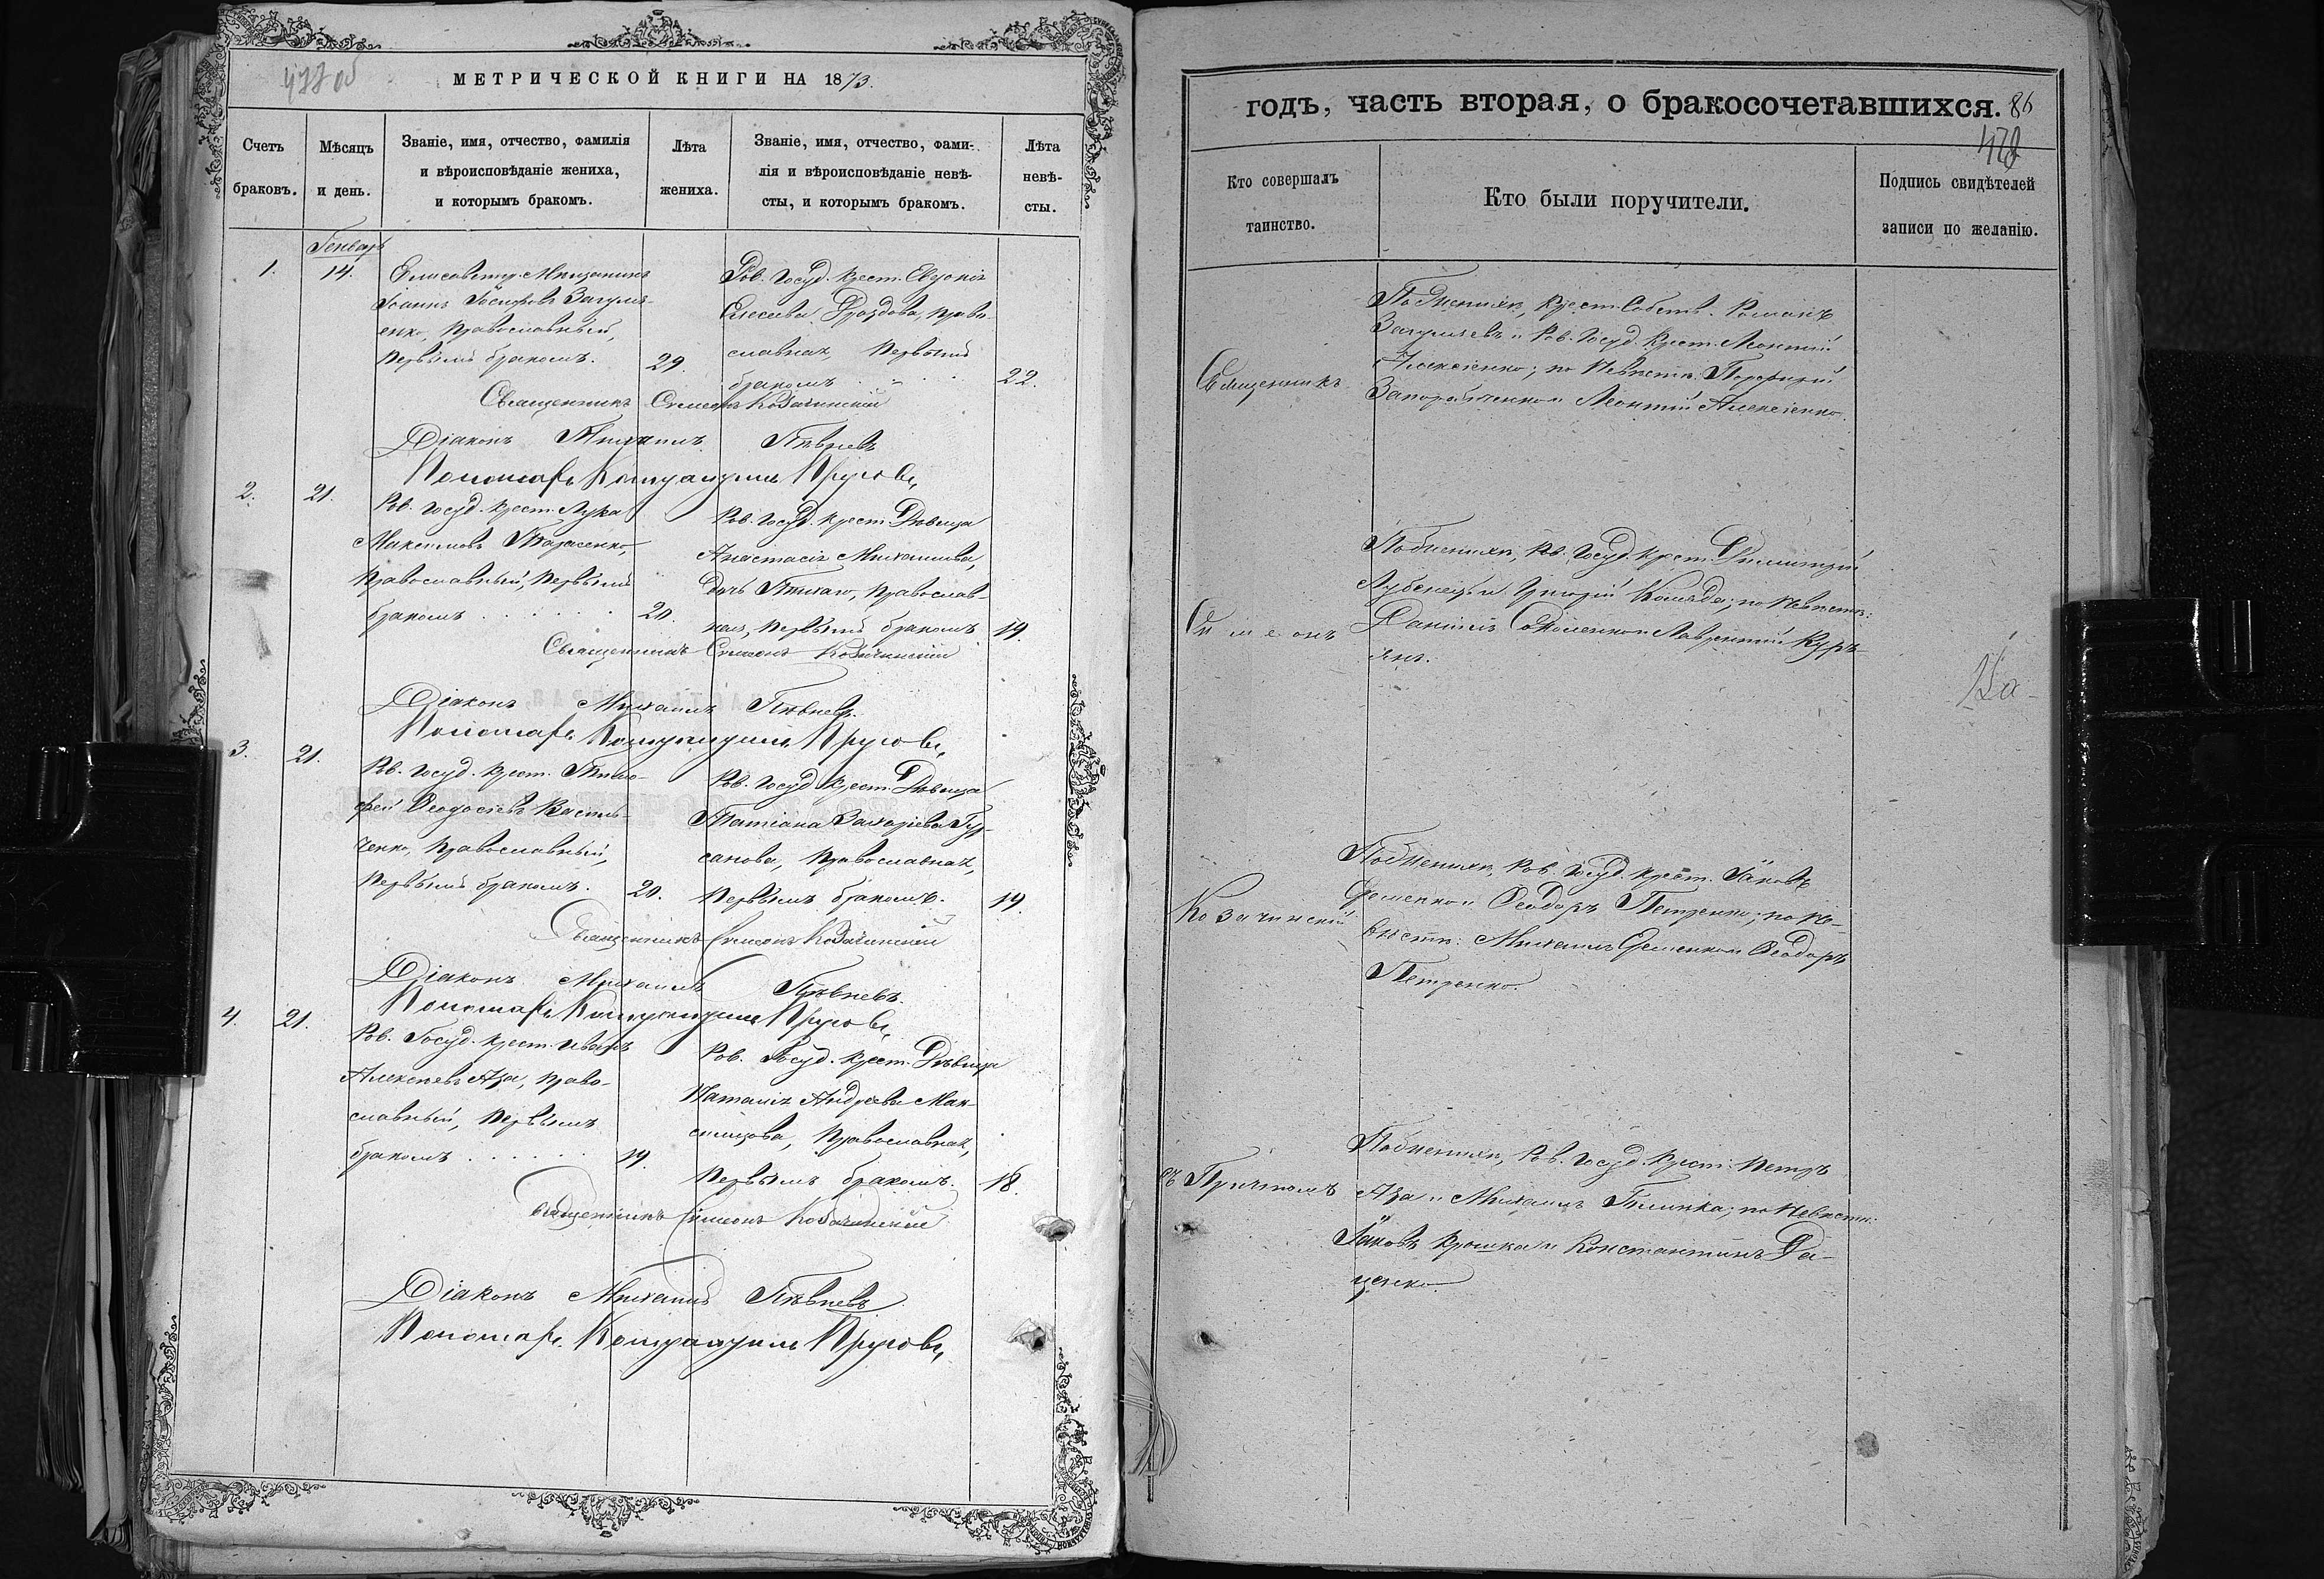 477 об
МЕТРИЧЕСКОЙ КНИГИ НА 1873.
Счетъ браковъ.
Мѣсяцъ и день.
Званіе, имя, отчество, фамилія
и вѣроисповѣданіе жениха,
и которымъ бракомъ.
Лѣта жениха.
Званіе, имя, отчество, фами-
лія и вѣроисповѣданіе невѣ-
сты, и которымъ бракомъ.
Лѣта невѣ-
сты.
Генварь
1.
14.
Елисаветгр. Мѣщанинъ
Іоаннъ Іосифовъ Загуль-
енко, православный,
первымъ бракомъ.
29
Ров. Госуд. крест. Евдокія
Елисеева Дроздова, право-
славная, первымъ
бракомъ
22.
Священникъ Симеонъ Козачинскій
Діаконъ Михаилъ Пѣвневъ
Пономарь
2.
21.
Ров. Госуд. крест. Лука
Максимовъ Тарасенко,
православный, первымъ
бракомъ
20.
Ров. Госуд. крест. Дѣвица
Анастасія Михаилова,
православ-
ная, первымъ бракомъ
19.
Священникъ Симеонъ Козачинскій
Діаконъ Михаилъ Пѣвневъ.
Пономарь
3.
21.
Ров. Госуд. крест. Тимо-
фей Ѳеодосіевъ Василь-
ченко, православный,
первымъ бракомъ.
20.
Ров. Госуд. крест. Дѣвица
Татіана Захаріева Гур-
санова, православная,
первымъ бракомъ.
19.
Священникъ Симеонъ Козачинскій
Діаконъ Михаилъ Пѣвневъ.
Пономарь
4.
21.
Ров. Госуд. крест. Иванъ
Алексѣевъ Аза, право-
славный, первымъ
бракомъ
19.
Ров. Госуд. крест. Дѣвица
Наталія Андреева Мак-
симова, православная,
первымъ бракомъ.
18.
Священникъ Симеонъ Козачинскій
Діаконъ Михаилъ Пѣвневъ
Пономарь
годъ, часть вторая, о бракосочетавшихся.
86
478
Кто совершалъ таинство.
Кто были поручители.
Подпись свидѣтелей
записи по желанію.
Священникъ
По женихѣ, крест. Собств. Романъ
и Ров. Госуд. крест. Леонтій
Алексіенко; по невѣстѣ: Порфирій
Запорожченко и Леонтій Алексіенко.
Симеонъ
По женихѣ, Ров. Госуд. крест. Димитрій
Лубенецъ и Григорій Коляда; по невѣстѣ:
Даніилъ и Лаврентій Курь-
янъ.
Козачинскій
По женихѣ, Ров. Госуд. крест. Іаковъ
и Ѳеодоръ Петренко; по не-
вѣстѣ: Михаилъ и Ѳеодоръ
Петренко.
съ Причтомъ
По женихѣ, Ров. Госуд. крест. Петръ
Аза и Михаилъ по невѣстѣ:
Іаковъ Крошка и Константинъ Да-
ценко.